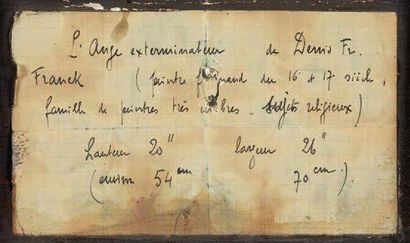 L'Ange exterminateur de Denis Fr.
Franck (peintre flamand du 16 et 17 siècle,
famille de peintres très célèbres - sujets religieux)
hauteur 20" largeur 26"
(environ 54 cm 70 cm.)